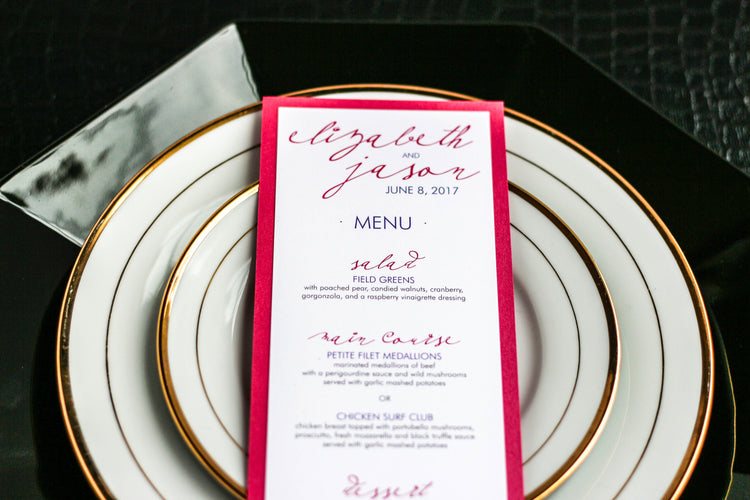 elizabeth
AND
jason
JUNE 8, 2017
· MENU ·
salad
FIELD GREENS
with poached pear, candied walnuts, cranberry,
gorgonzola, and a raspberry vinaigrette dressing
main course
PETITE FILET MEDALLIONS
marinated medallions of beef
with a perigourdine sauce and wild mushrooms
served with garlic mashed potatoes
OR
CHICKEN SURF CLUB
chicken breast topped with portobello mushrooms,
prosciutto, fresh mozzarella and black truffle sauce
served with garlic mashed potatoes
dessert